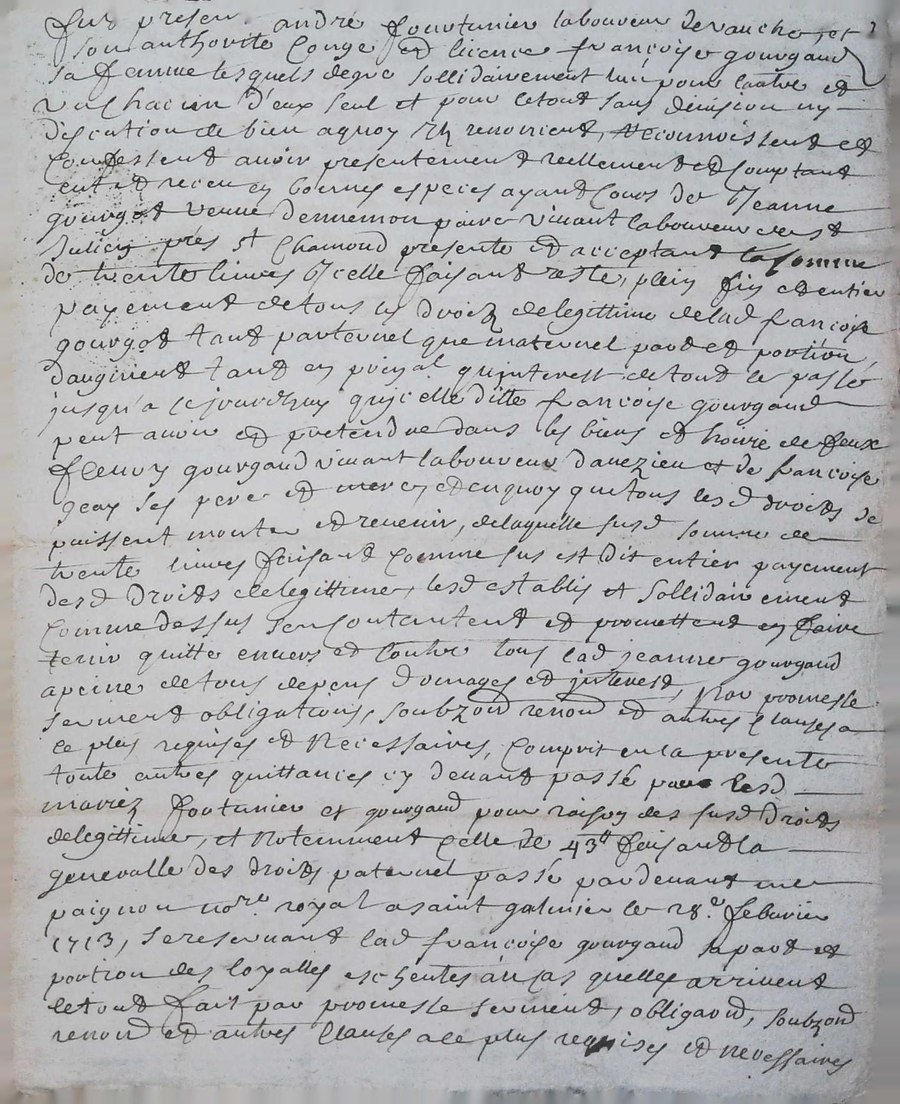 fuz presen andré fourtunier laboureur de vauche, et
son authorité Congé et licence françoize gourgaud
sa femme lesquels de gré sollidairement luy pour lautre et
un chacun d'eux seul et pour le tout sans division ny
discution de bien a quoy renoncient, Reconnoissent et
Confessent avoir presentement reellement et Comptant
eut et receu en bonnes especes ayant Cours de Jeanne
gourgot veuve dennemon paire vivant laboureur de st
Julien pres st Chamond presente et acceptant la somme
de trente livres Icelle faisant reste, plein fin et entier
payement de tous les droictz de legittime de lad françoize
gourgot tant parternel que maternel part et portion
daugment tant en prinpal quinterest de tout le passé
jusqu'a cejourdhuy qu'jcelle ditte françoise gourgaud
peut avoir et pretendre dans les biens et hoirie de feux
fleury gourgaud vivant laboureur daveizieu et de françoise
geay ses pere et mere et enquoy que tous lesd droits se
puissent monter et revenir, de laquelle susd somme de
trente livres faisant Comme sus est dit entier payement
desd droits de legittime, lesd establis et sollidairement
Comme dessus sen Contantent et promettent en faire
tenir quitte envers et Contre tous lad jeanne gourgaud
a peine de tous depens domages et jnterest, par promesse
serment obligations, soubzond renond et autres Clauses a
ce plus requises et Necessaires, Comprit en la presente
toute autres quittances cy devant passé par lesd
mariez fortunier et gourgaud pour raison des susd droits
de legittime, et Notemment Celle de 43tt faisant la
generalle des droits paternel passé pardevant me
paignon nore royal a saint galmier le 28e febvrier
1713, se reservant lad françoise gourgaud sa part et
portion des loyalles escheutes au cas quelles arrivent
le tout fait par promesse serment, obligaond, soubzond
renond et autres Clauses a ce plus requises et necessaires